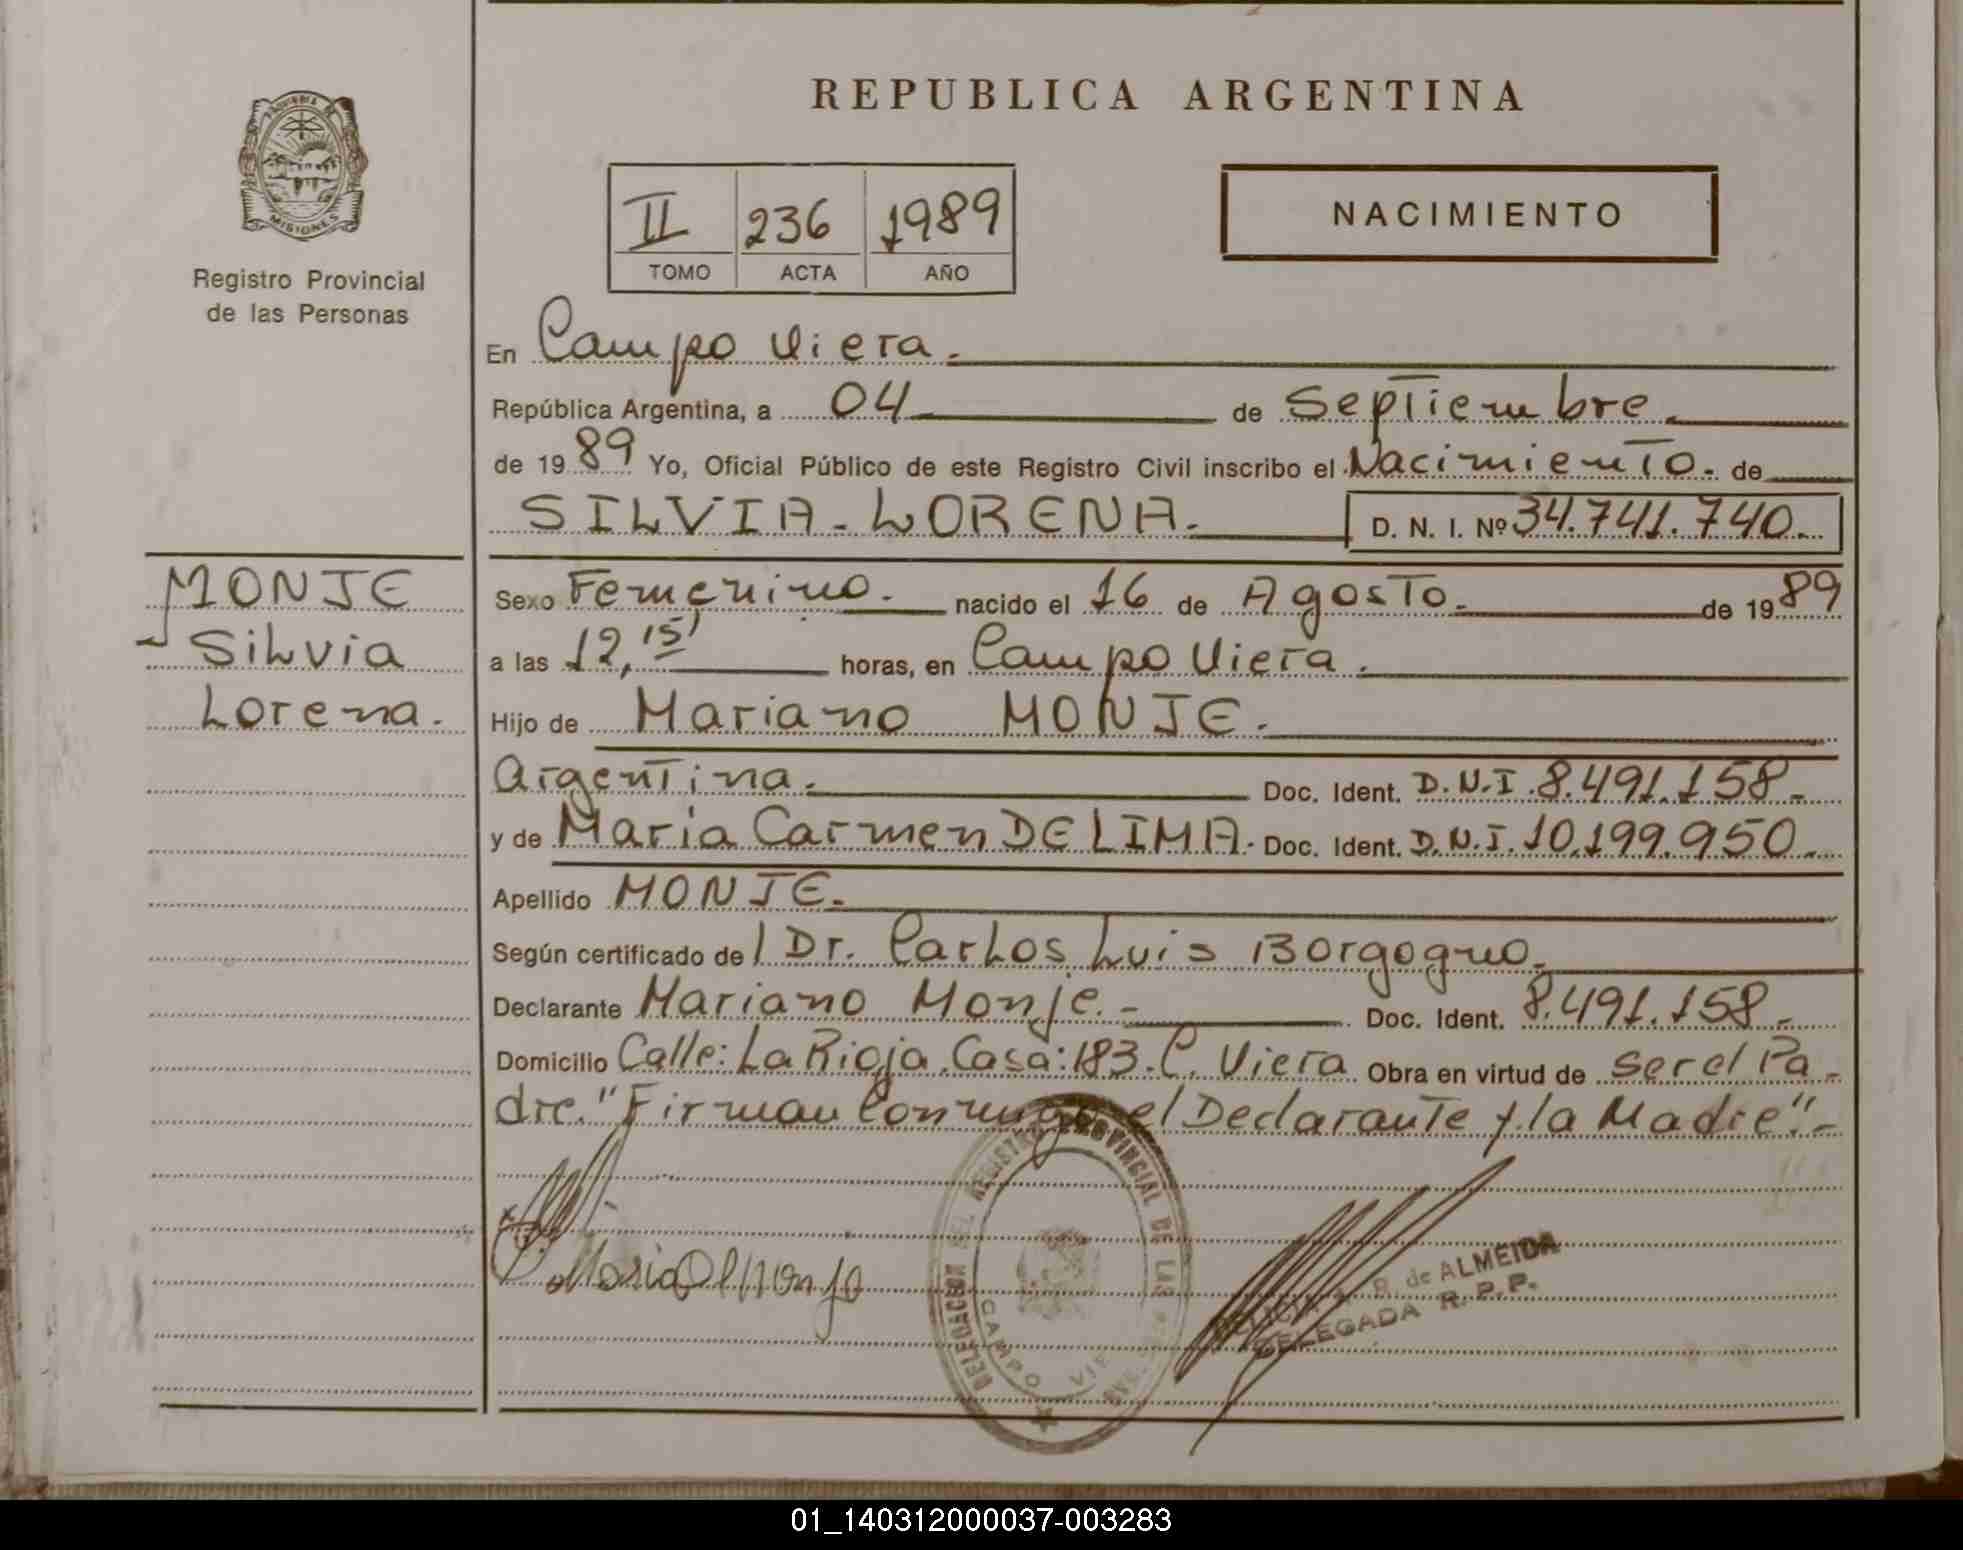 REPUBLICA ARGENTINA
MISIONES
Registro Provincial
de las Personas
II 236 1989
TOMO ACTA AÑO
NACIMIENTO
En Campo Viera.
República Argentina, a 04 de Septiembre.
de 1989 Yo, Oficial Público de este Registro Civil inscribo el Nacimiento. de
SILVIA-LORENA. D. N. I. Nº 34.741.740.
MONJE
Silvia
Lorena.
Sexo Femenino. nacido el 16 de Agosto. de 1989
a las 12,15' horas, en Campo Viera.
Hijo de Mariano MONJE.
Argentina. Doc. Ident. D.N.I. 8.491.158.-
y de Maria Carmen DE LIMA. Doc. Ident. D.N.I. 10.199.950.
Apellido MONJE.
Según certificado del Dr. Carlos Luis Borgogno.
Declarante Mariano Monje.- Doc. Ident. 8.491.158.-
Domicilio Calle: La Rioja. Casa: 183. C. Viera Obra en virtud de ser el Pa-
dre. "Firman Conmigo el Declarante y la Madre".-
DELEGACION DEL REGISTRO PROVINCIAL DE LAS
CAMPO VIE
R. de ALMEIDA
DELEGADA R. P. P.
01_140312000037-003283